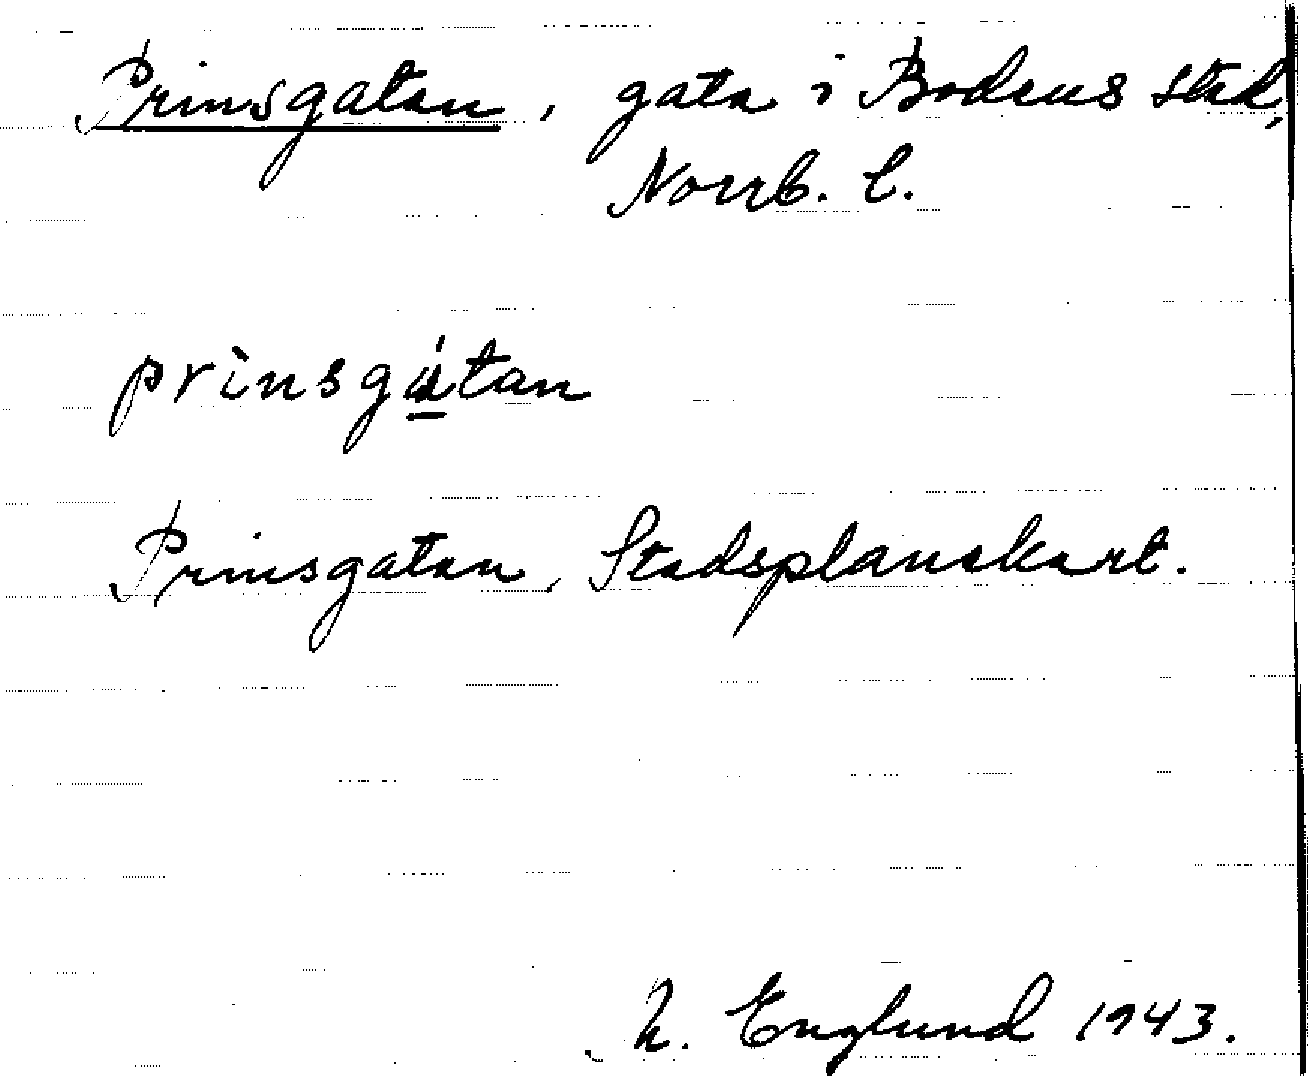 Prinsgatan, gata i Bodens stad,
Norrb. l.
prìnsgá̱tan
Prinsgatan, Stadsplanekart.
Englund 1943.